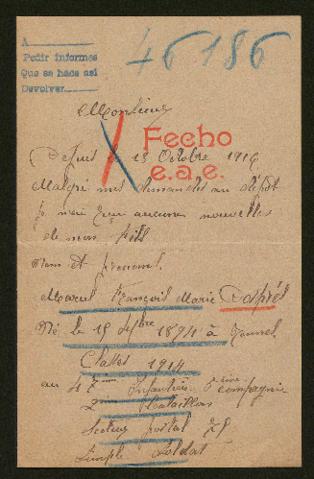 A
Pedir informes
Que se hace así
Devolver
46186
Monsieur
Fecho
e.a.e.
Depuis le 13 Octobre 1914
Malgré mes demandes au dépôt
je n'ai reçu aucunes nouvelles
de mon fils
Nom et prenoms
Marcel François Marie Després
Né le 15 1894 à
Classe 1914
au 47ème Infanterie compagnie
2ème Bataillon
Secteur postal 75
Simple Soldat